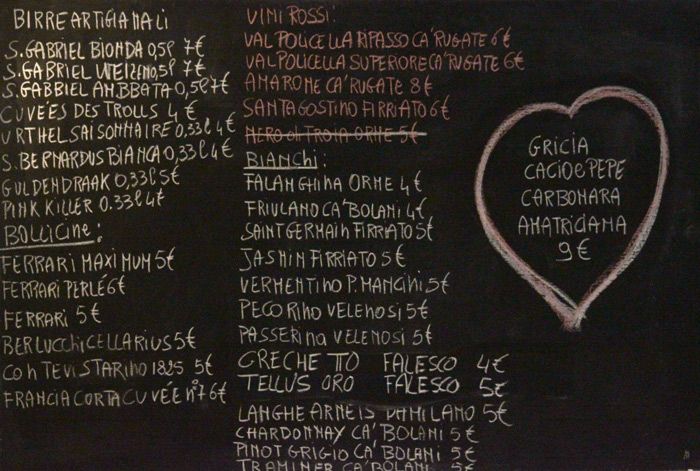 BIRRE ARTIGIANALI
S.GABRIEL BIONDA 0,5l 7€
S.GABRIEL WEIZEN 0,5l 7€
S.GABBIEL AMBBATA 0,5l 7€
CUVÉES DES TROLLS 4€
URTHEL SAISONNAIRE 0,33l 4€
S.BERNARDUS BIANCA 0,33l 4€
GULDENDRAAK 0,33l 5€
PINK KILLER 0.33l 4€
BOLLICINE:
FERRARI MAXIMUM 5€
FERRARI PERLÉ 6€
FERRARI 5€
BERLUCCHI CELLARIUS 5€
CONTE VISTARINO 1825 5€
FRANCIACORTA CUVÉE n°7 6€
VINI ROSSI:
VALPOLICELLA RIPASSO CA'RUGATE 6€
VALPOLICELLA SUPERIORE CA'RUGATE 6€
AMARONE CA'RUGATE 8€
SANTAGOSTINO FIRRIATO 6€
NERO di TROIA ORME 5€
BIANCHI:
FALANGHINA ORME 4€
FRIULANO CA'BOLANI 4€
SAINT GERMAIN FIRRIATO 5€
JASMIN FIRRIATO 5€
VERMENTINO P.MANCHI 5€
PECORINO VELENOSI 5€
PASSERINA VELENOSI 5€
GRECHETTO FALESCO 4€
TELLUS ORO FALESCO 5€
LANGHE ARNEIS DAMILANO 5€
CHARDONNAY CA'BOLANI 5€
PINOT GRIGIO CA'BOLANI 5€
TRAMINER CA'BOLANI 5€
GRICIA
CACIO e PEPE
CARBONARA
AMATRICIANA
9€